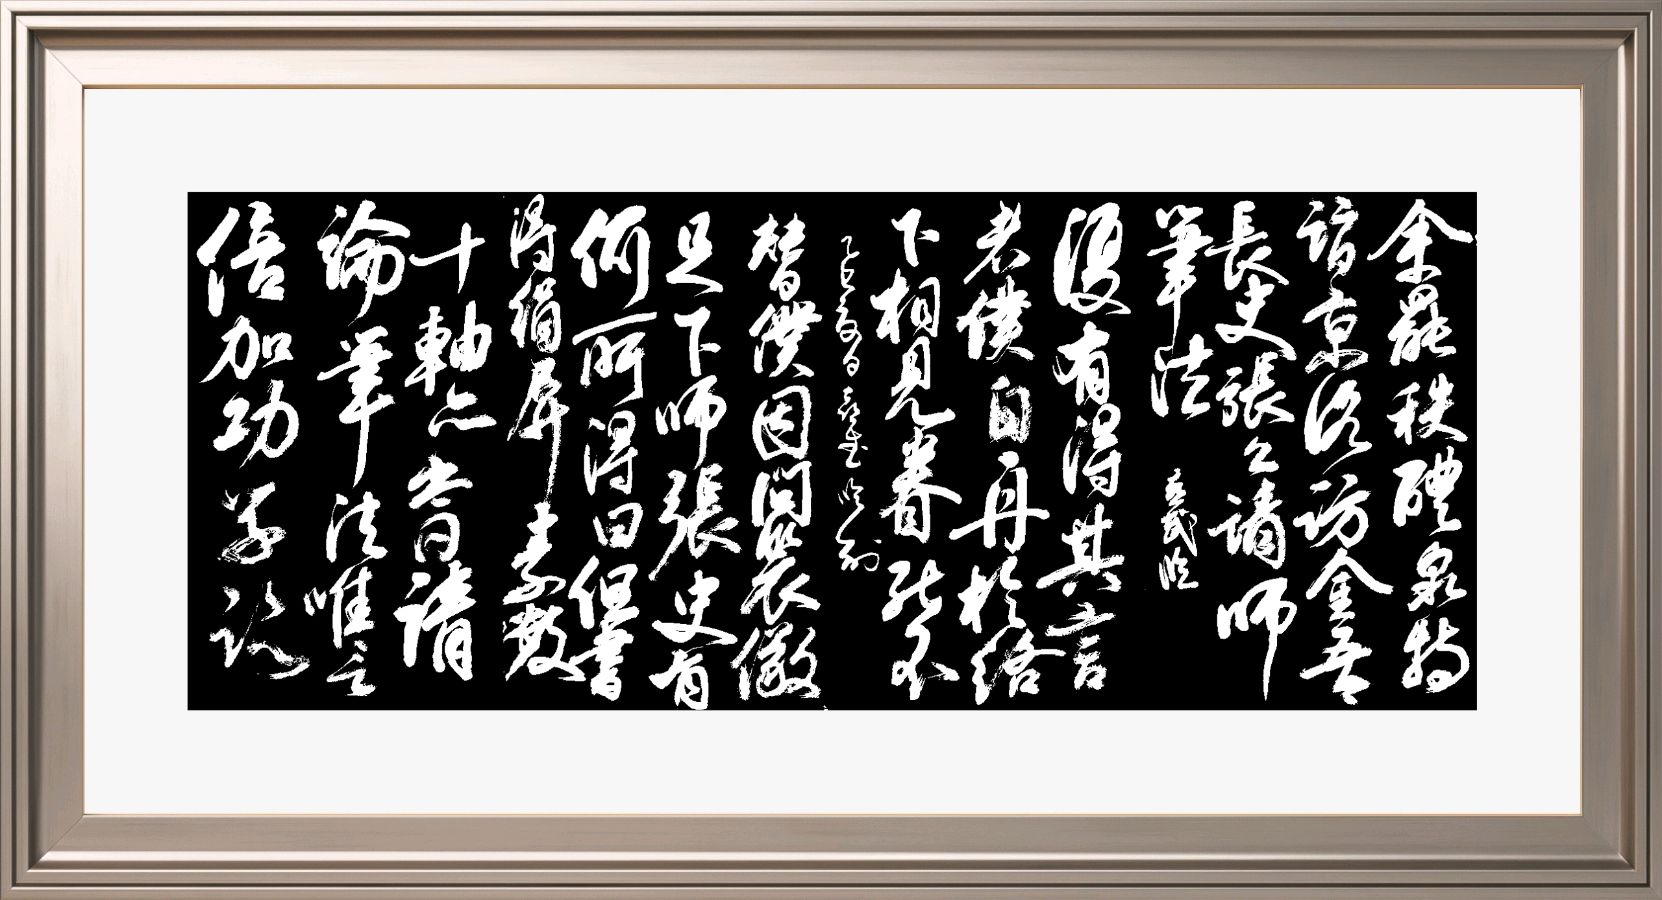 余罷秩醴泉特
詣京洛訪金吾
長史張公請師
筆法
復有得其言
者僕自再於洛
下相見眷然不
替僕因問裴儆
足下師張史有
何所得曰但書
得絹屏素數
十軸亦嘗請
論筆法唯言
倍加功學臨